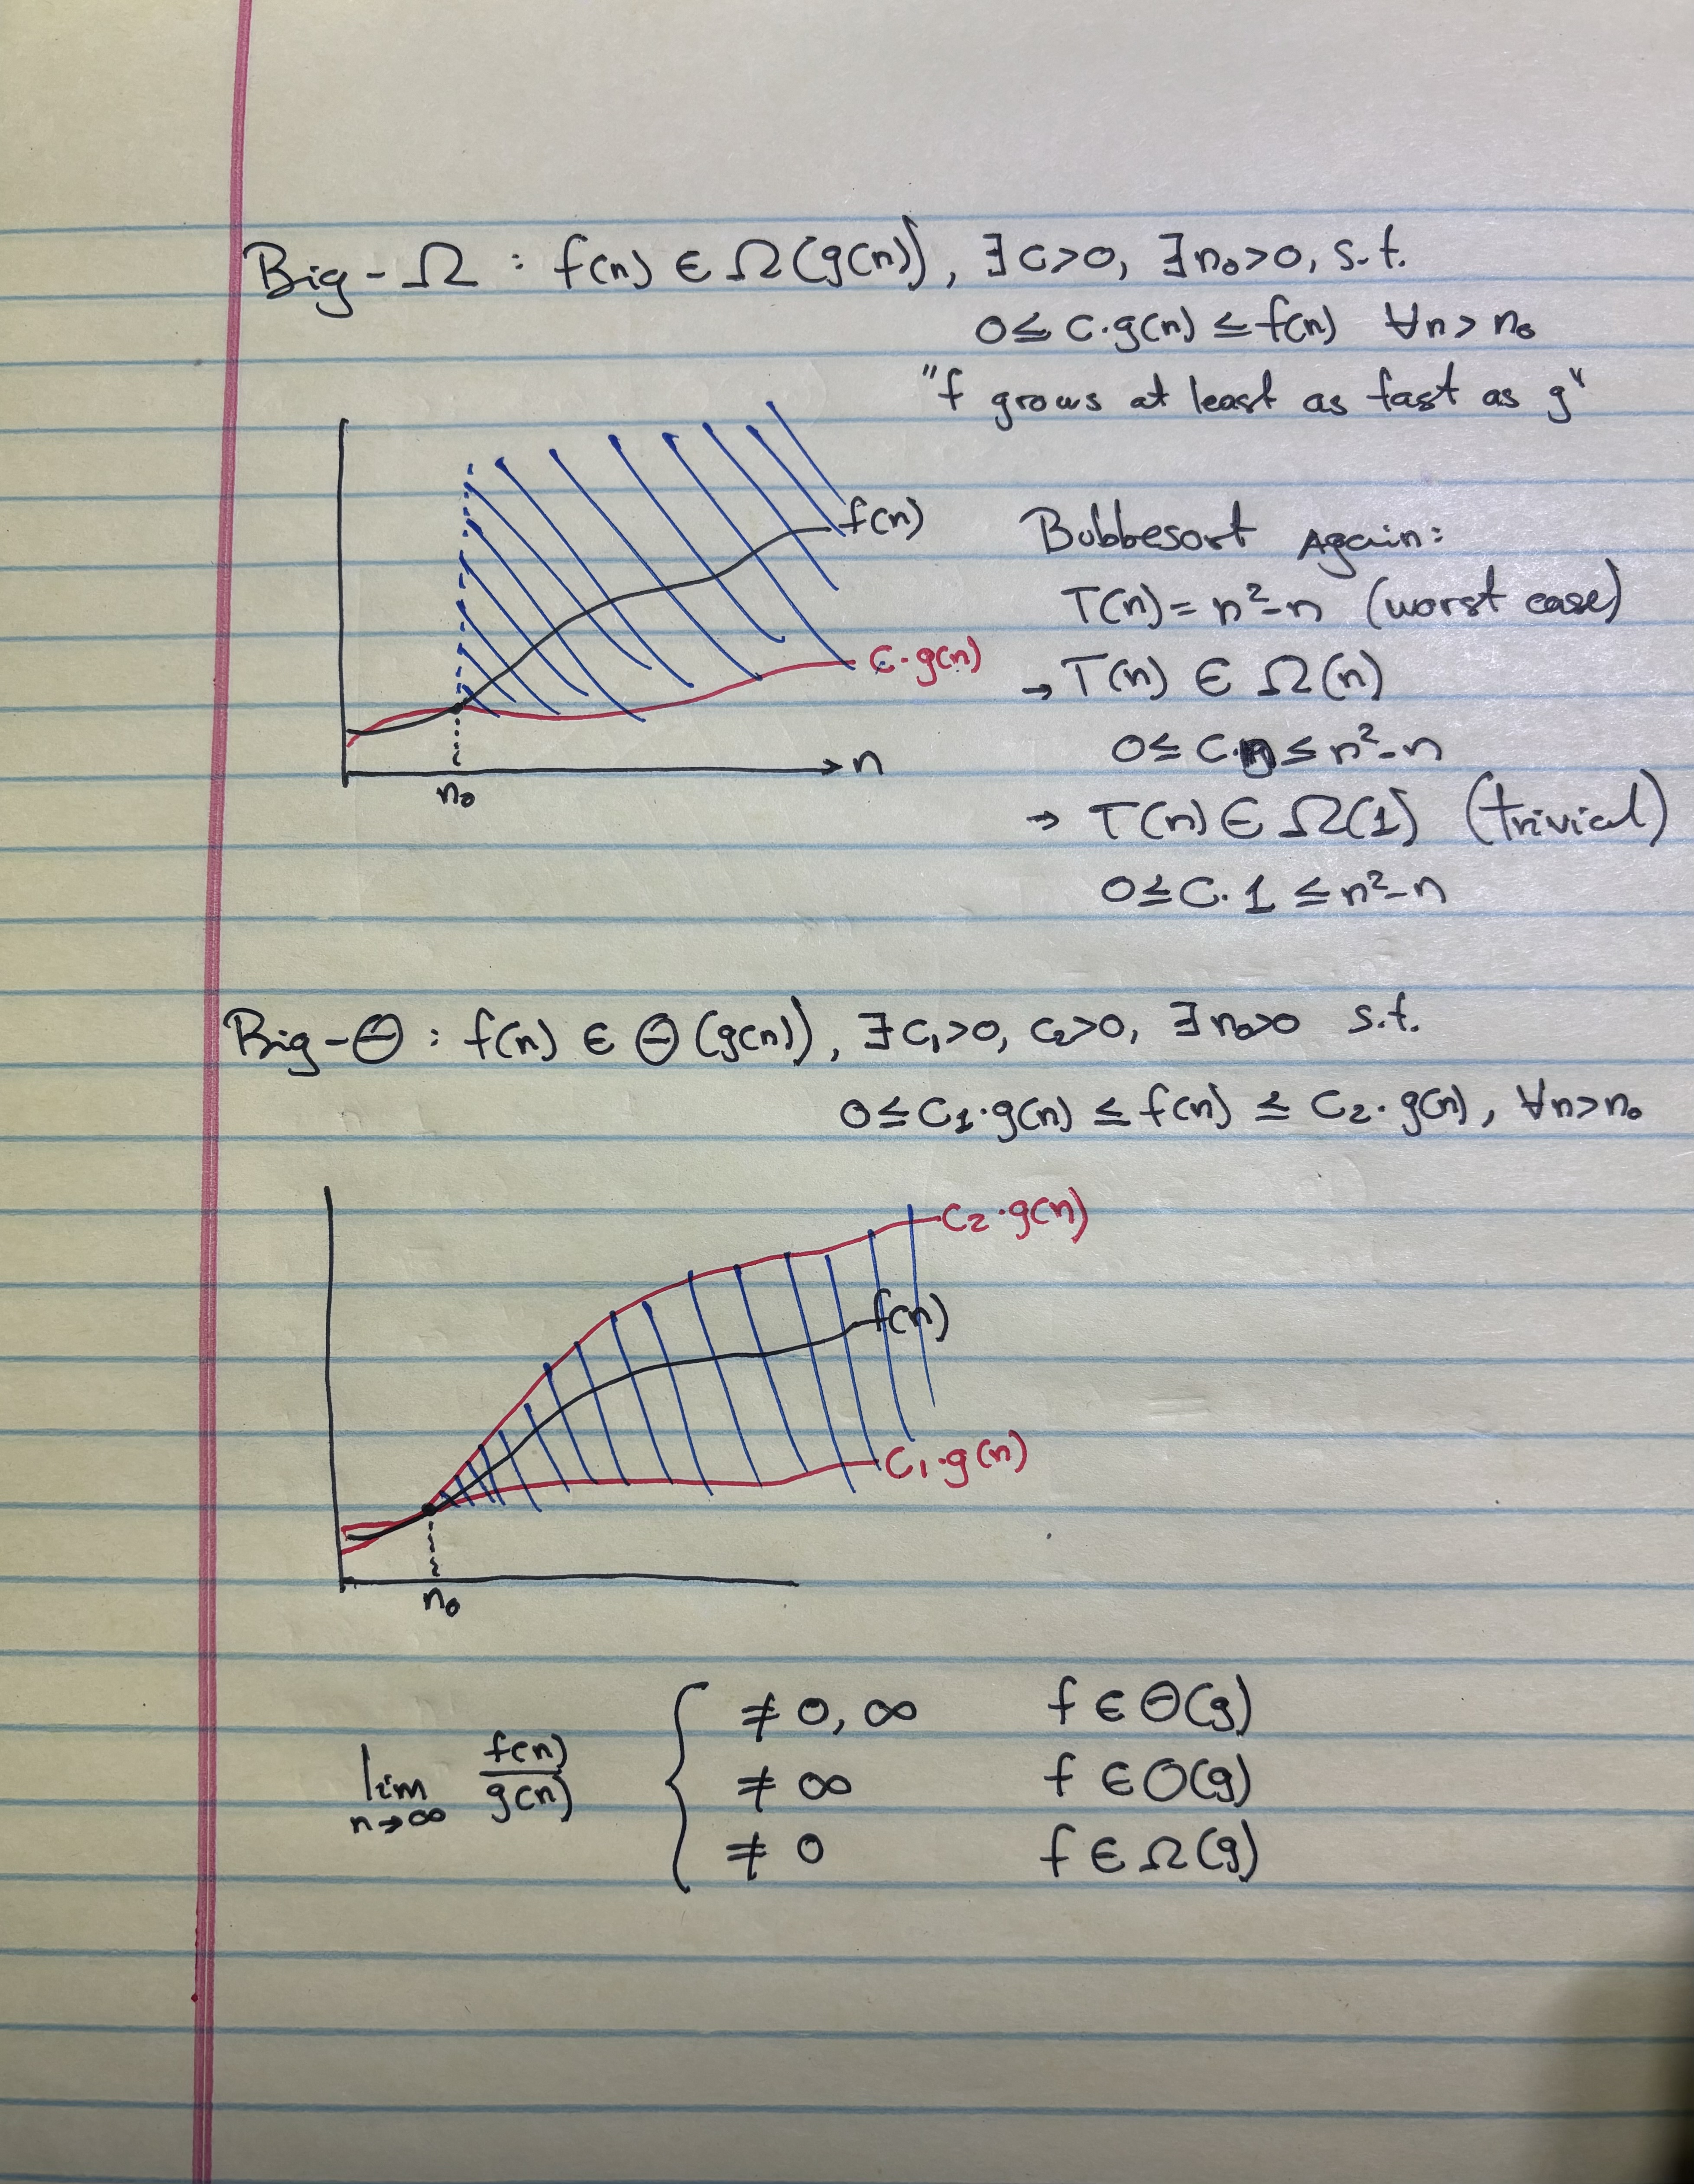 Big-Ω : f(n) ∈ Ω(g(n)), ∃ c>0, ∃ n₀>0, s.t.
0 ≤ c·g(n) ≤ f(n) ∀n > n₀
"f grows at least as fast as g"
f(n)
c·g(n)
n
n₀
Bubbesort Again:
T(n) = n²-n (worst case)
→ T(n) ∈ Ω(n)
0 ≤ c·n ≤ n²-n
→ T(n) ∈ Ω(1) (trivial)
0 ≤ c·1 ≤ n²-n
Big-Θ : f(n) ∈ Θ(g(n)), ∃ c₁>0, c₂>0, ∃ n₀>0 s.t.
0 ≤ c₁·g(n) ≤ f(n) ≤ c₂·g(n), ∀n>n₀
c₂·g(n)
f(n)
c₁·g(n)
n₀
lim n→∞ f(n)/g(n) { ≠ 0, ∞ f ∈ Θ(g)
≠ ∞ f ∈ O(g)
≠ 0 f ∈ Ω(g)